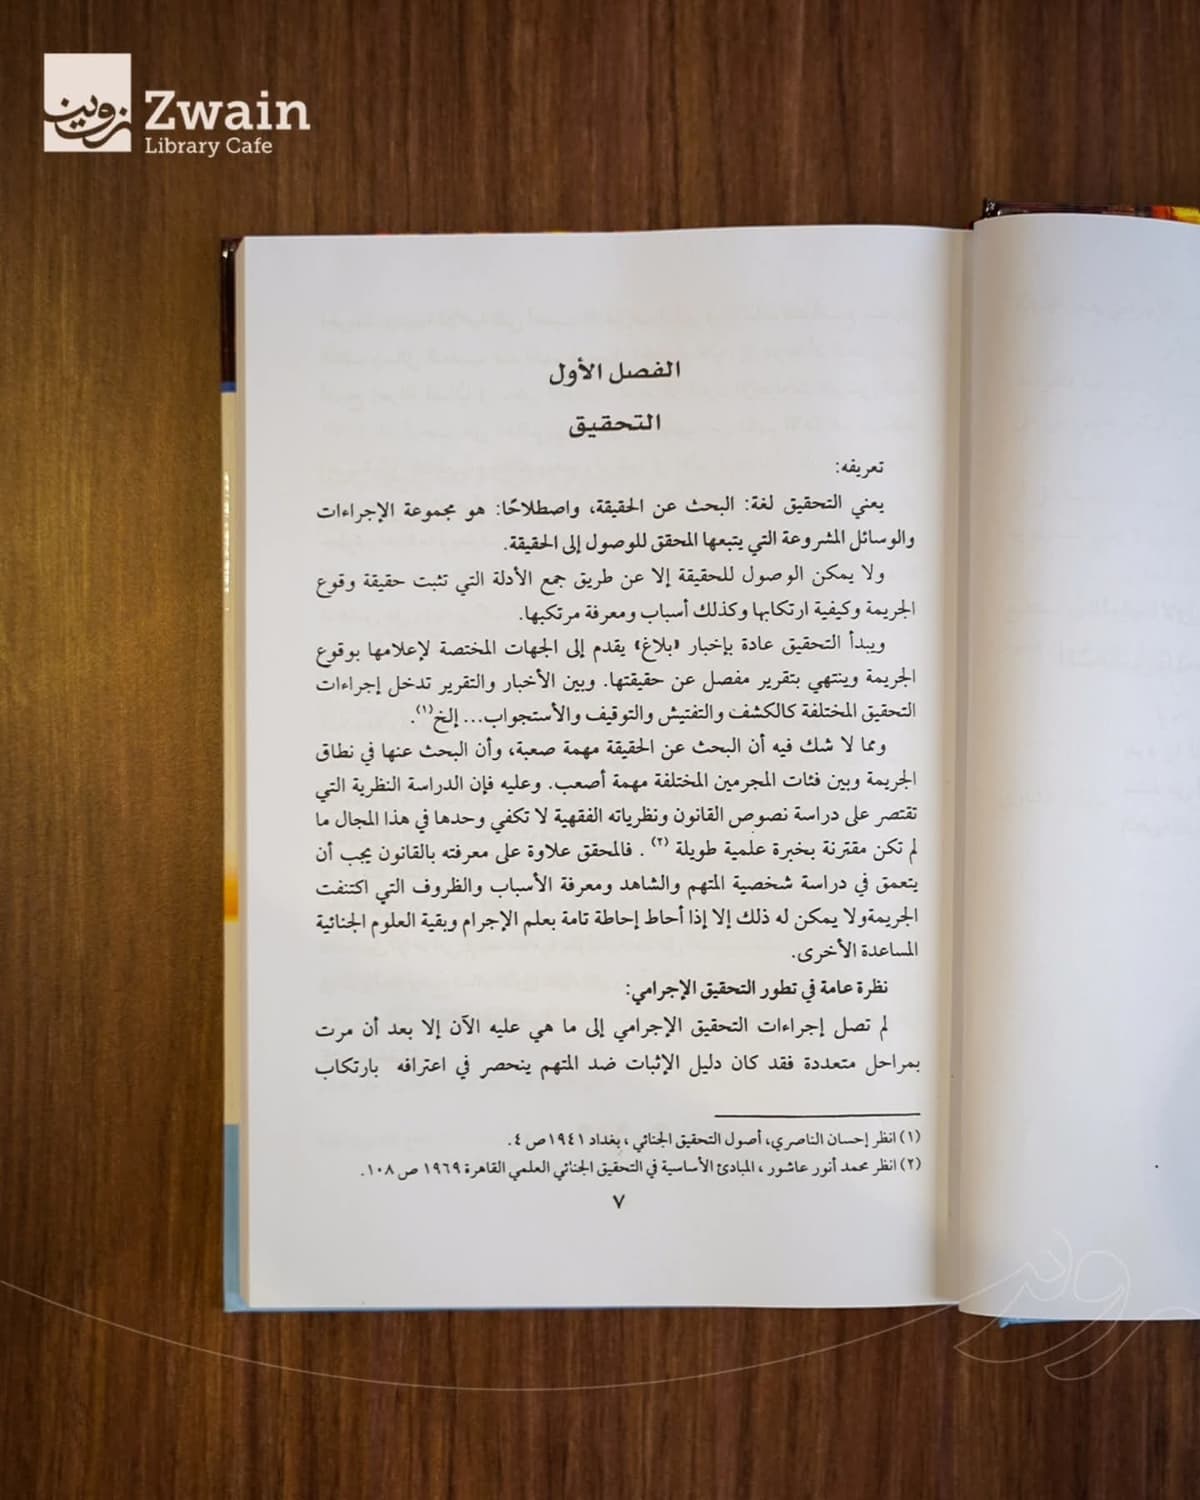 زوين
Zwain
Library Cafe
الفصل الأول
التحقيق
تعريفه:
يعني التحقيق لغة: البحث عن الحقيقة، واصطلاحًا: هو مجموعة الإجراءات
والوسائل المشروعة التي يتبعها المحقق للوصول إلى الحقيقة.
ولا يمكن الوصول للحقيقة إلا عن طريق جمع الأدلة التي تثبت حقيقة وقوع
الجريمة وكيفية ارتكابها وكذلك أسباب ومعرفة مرتكبها.
ويبدأ التحقيق عادة بإخبار «بلاغ» يقدم إلى الجهات المختصة لإعلامها بوقوع
الجريمة وينتهي بتقرير مفصل عن حقيقتها. وبين الأخبار والتقرير تدخل إجراءات
التحقيق المختلفة كالكشف والتفتيش والتوقيف والأستجواب... إلخ(١).
ومما لا شك فيه أن البحث عن الحقيقة مهمة صعبة، وأن البحث عنها في نطاق
الجريمة وبين فئات المجرمين المختلفة مهمة أصعب. وعليه فإن الدراسة النظرية التي
تقتصر على دراسة نصوص القانون ونظرياته الفقهية لا تكفي وحدها في هذا المجال ما
لم تكن مقترنة بخبرة علمية طويلة (٢) . فالمحقق علاوة على معرفته بالقانون يجب أن
يتعمق في دراسة شخصية المتهم والشاهد ومعرفة الأسباب والظروف التي اكتنفت
الجريمةولا يمكن له ذلك إلا إذا أحاط إحاطة تامة بعلم الإجرام وبقية العلوم الجنائية
المساعدة الأخرى.
نظرة عامة في تطور التحقيق الإجرامي:
لم تصل إجراءات التحقيق الإجرامي إلى ما هي عليه الآن إلا بعد أن مرت
بمراحل متعددة فقد كان دليل الإثبات ضد المتهم ينحصر في اعترافه بارتكاب
(١) انظر إحسان الناصري، أصول التحقيق الجنائي ، بغداد ١٩٤١ ص ٤.
(٢) انظر محمد أنور عاشور ، المبادئ الأساسية في التحقيق الجنائي العلمي القاهرة ١٩٦٩ ص ١٠٨.
٧